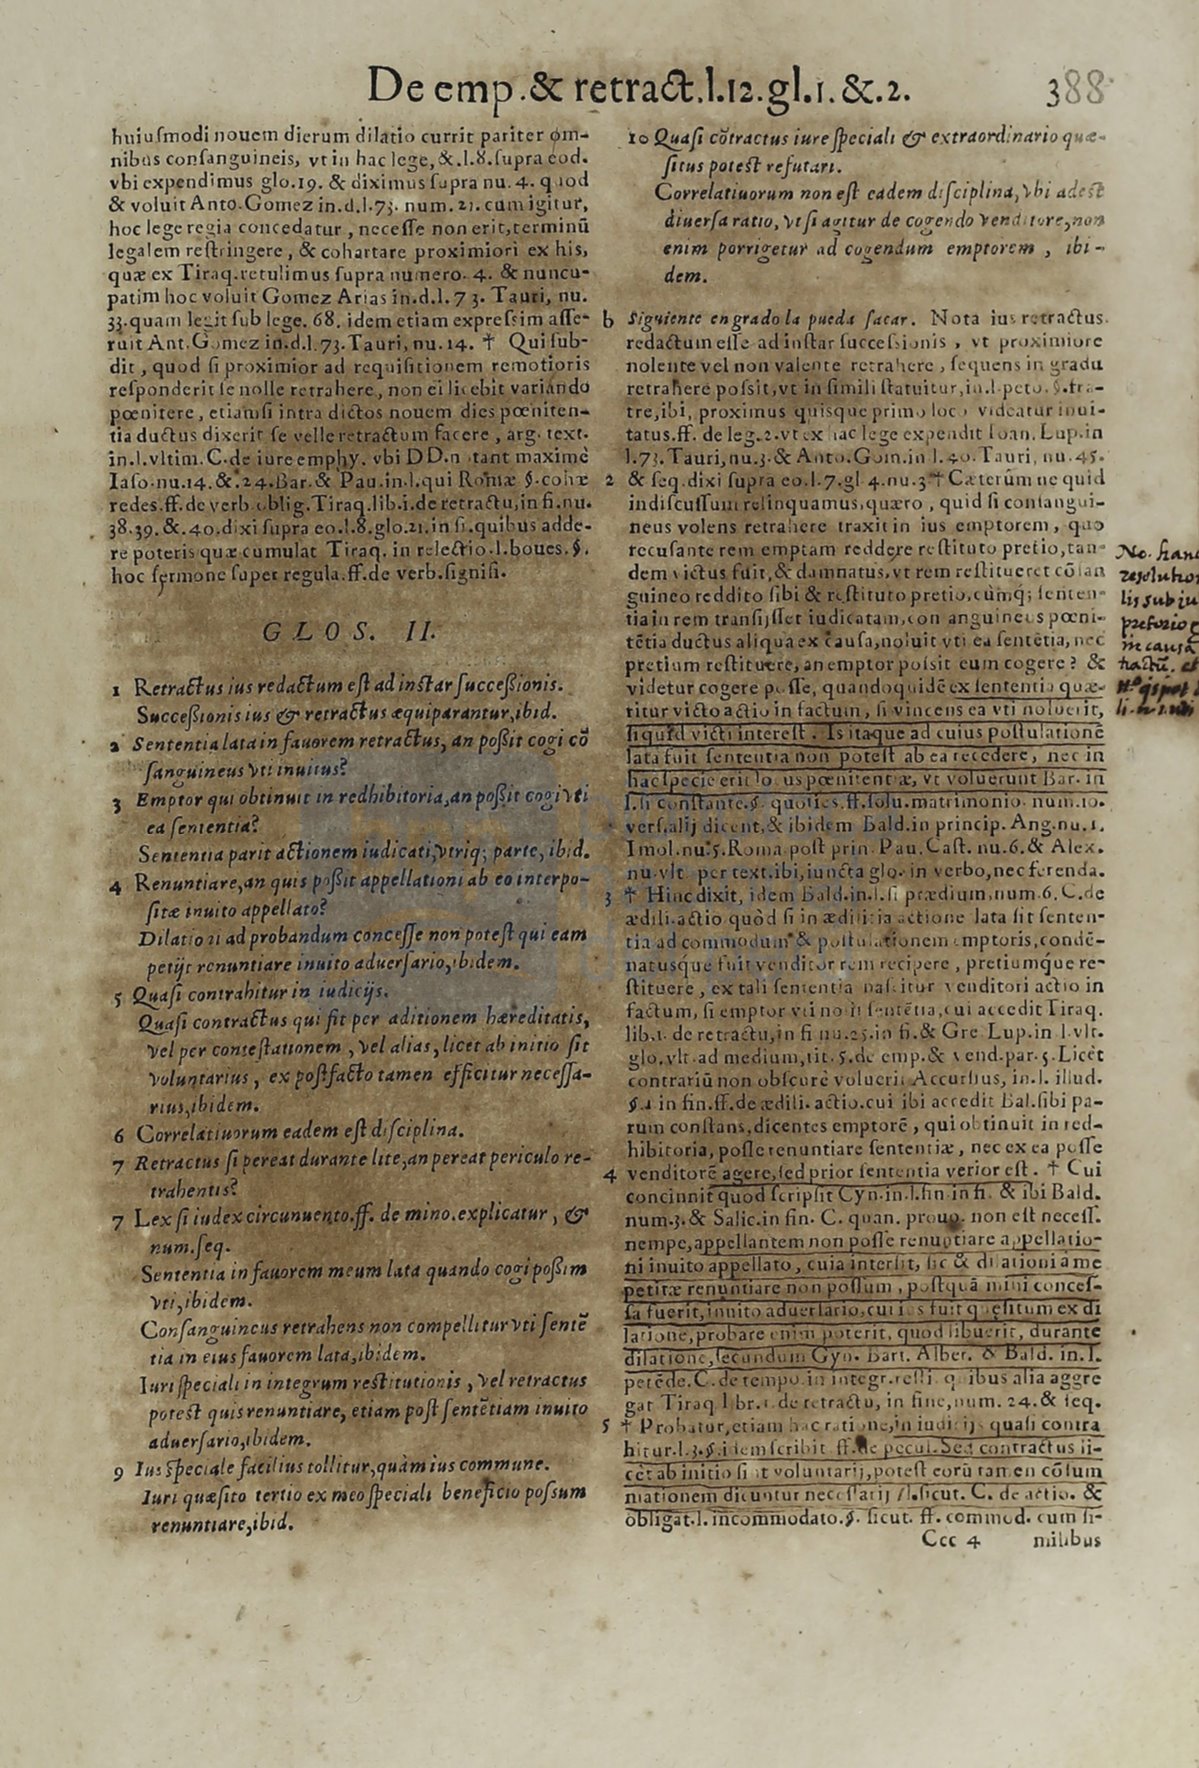 De emp.& retract.l.12.gl.1.&.2. 388
huiuſmodi nouem dierum dilatio currit pariter om-
nibus conſanguineis, vt in hac lege, &.l.8.ſupra eod.
vbi expendimus glo.19. & diximus ſupra nu.4. quod
& voluit Anto.Gomez in.d.l.73. num.21. cum igitur,
hoc lege regia concedatur, neceſſe non erit, terminū
legalem reſtringere, & cohartare proximiori ex his,
quæ ex Tiraq.retulimus ſupra numero.4. & nuncu-
patim hoc voluit Gomez Arias in.d.l.73. Tauri, nu.
33.quam legit ſub lege.68. idem etiam expreſsim aſſe-
ruit Ant.Gomez in.d.l.73.Tauri, nu.14. † Qui ſub-
dit, quod ſi proximior ad requiſitionem remotioris
reſponderit ſe nolle retrahere, non ei licebit variando
pœnitere, etiamſi intra dictos nouem dies pœniten-
tia ductus dixerit ſe velle retractum facere, arg. text.
in.l.vltim.C.de iure emphy. vbi DD.notant maximè
Iaſo.nu.14.&.24.Bar.& Pau.in.l.qui Romæ §.cohæ
redes.ff.de verb.oblig.Tiraq.lib.1.de retractu, in fi.nu.
38.39.&.40.dixi ſupra eo.l.8.glo.21.in fi.quibus adde-
re poteris quæ cumulat Tiraq. in relectio.l.boues.§.
hoc ſermone ſuper regula.ff.de verb.ſignifi.
GLOS. II.
1 Retractus ius redactum eſt ad inſtar ſucceßionis.
Succeßionis ius & retractus æquiparantur, ibid.
2 Sententia lata in fauorem retractus, an poßit cogi cō
ſanguineus vti inuitus?
3 Emptor qui obtinuit in redhibitoria, an poßit cogi vti
ea ſententia?
Sententia parit actionem iudicati, vtriq; parte, ibid.
4 Renuntiare, an quis poßit appellationi ab eo interpo-
ſitæ inuito appellato?
Dilationi ad probandum conceſſe non poteſt qui eam
petijt renuntiare inuito aduerſario, ibidem.
5 Quaſi contrahitur in iudicijs.
Quaſi contractus qui fit per aditionem hæreditatis,
vel per conteſtationem, vel alias, licet ab initio ſit
voluntarius, ex poſtfacto tamen efficitur neceſſa-
rius, ibidem.
6 Correlatiuorum eadem eſt diſciplina.
7 Retractus ſi pereat durante lite, an pereat periculo re-
trahentis?
7 Lex ſi iudex circunuento.ff. de mino.explicatur, &
num.ſeq.
Sententia in fauorem meum lata quando cogi poßim
vti, ibidem.
Conſanguineus retrahens non compellitur vti ſentē
tia in eius fauorem lata, ibidem.
Iuri ſpeciali in integrum reſtitutionis, vel retractus
poteſt quis renuntiare, etiam poſt ſentētiam inuito
aduerſario, ibidem.
9 Ius ſpeciale facilius tollitur, quàm ius commune.
Iuri quæſito tertio ex meo ſpeciali beneficio poſsum
renuntiare, ibid.
10 Quaſi cōtractus iure ſpeciali & extraordinario quæ-
ſitus poteſt refutari.
Correlatiuorum non eſt eadem diſciplina, vbi adeſt
diuerſa ratio, vt ſi agitur de cogendo venditore, non
enim porrigetur ad cogendum emptorem, ibi-
dem.
b Siguiente en grado la pueda ſacar. Nota ius retractus
redactum eſſe ad inſtar ſucceſsionis, vt proximiore
nolente vel non valente retrahere, ſequens in gradu
retrahere poſsit, vt in ſimili ſtatuitur, in.l.peto.§.fra-
tre, ibi, proximus quisque primo loco videatur inui-
tatus.ff. de leg.2.vt ex hac lege expendit Ioan.Lup.in
l.73.Tauri, nu.3.& Anto.Gom.in l.40.Tauri, nu.45.
2 & ſeq.dixi ſupra eo.l.7.gl.4.nu.3. † Cæterùm ne quid
indiſcuſſum relinquamus, quæro, quid ſi conſangui-
neus volens retrahere traxit in ius emptorem, quo
recuſante rem emptam reddere reſtituto pretio, tan-
dem victus fuit, & damnatus, vt rem reſtitueret cōſan
guineo reddito ſibi & reſtituto pretio, cùmq; ſenten-
tia in rem tranſijſſet iudicatam, conſanguineus pœni-
tētia ductus aliqua ex cauſa, noluit vti ea ſentētia, nec
pretium reſtituere, an emptor poſsit eum cogere? &
videtur cogere poſſe, quandoquidē ex ſententia quæ-
ritur victo actio in factum, ſi vincens ea vti noluerit,
ſi quid victi intereſt. Is itaque ad cuius poſtulationē
lata fuit ſententia non poteſt ab ea recedere, nec in
hac ſpecie erit locus pœnitentiæ, vt voluerunt Bar. in
l.ſi conſtante.§. quoties.ff.ſolu.matrimonio. num.10.
verſ.alij dicent, & ibidem Bald.in princip. Ang.nu.1.
Imol.nu.5.Roma.poſt prin. Pau. Caſt. nu.6.& Alex.
nu.vlt. per text.ibi, iuncta glo. in verbo, nec ferenda.
3 † Hinc dixit, idem Bald.in.l.ſi prædium, num.6.C.de
ædili.actio quòd ſi in ædilitia actione lata ſit ſenten-
tia ad commodum & poſtulationem emptoris, condē-
natusque fuit venditor rem recipere, pretiumque re-
ſtituere, ex tali ſententia naſcitur venditori actio in
factum, ſi emptor vti nolit ſentētia, cui accedit Tiraq.
lib.1. de retractu, in fi nu.25.in fi.& Gre.Lup.in l.vlt.
glo.vlt.ad medium, tit.5.de emp.& vend.par.5.Licèt
contrariū non obſcurè voluerit Accurſius, in.l. illud.
§.1 in fin.ff.de ædili. actio.cui ibi accedit Bal.ſibi pa-
rum conſtans, dicentes emptorē, qui obtinuit in red-
hibitoria, poſſe renuntiare ſententiæ, nec ex ea poſſe
4 venditorē agere, ſed prior ſententia verior eſt. † Cui
concinnit quod ſcripſit Cyn.in.l.fin in fi. & ibi Bald.
num.3.& Salic.in fin. C. quan. prouo. non eſt neceſſ.
nempe, appellantem non poſſe renuntiare appellatio-
ni inuito appellato, cuia interſit, ſic & dilationi à me
petitæ renuntiare non poſſum, poſtquā mihi conceſ-
ſa fuerit, inuito aduerſario, cui ius fuit quæſitum ex di
latione, probare enim poterit, quod libuerit, durante
dilatione, ſecundum Cyn. Bart. Alber. & Bald. in.l.
petēde.C.de tempo.in integr.reſti. quibus alia aggre
gat Tiraq. libr.1.de retractu, in fine, num. 24.& ſeq.
5 † Probatur, etiam hac ratione, in iudicijs quaſi contra
hitur.l.3.§.idem ſcribit. ff.de pecul. Sed contractus li-
cèt ab initio ſint voluntarij, poteſt eorū tamen cōſum
mationem dicuntur neceſſarij l.ſicut. C. de actio. &
obligat.l. in commodato.§. ſicut. ff. commod. cum ſi-
Ccc 4 milibus
No. hanc
resolutio
lis sub iu
in causa